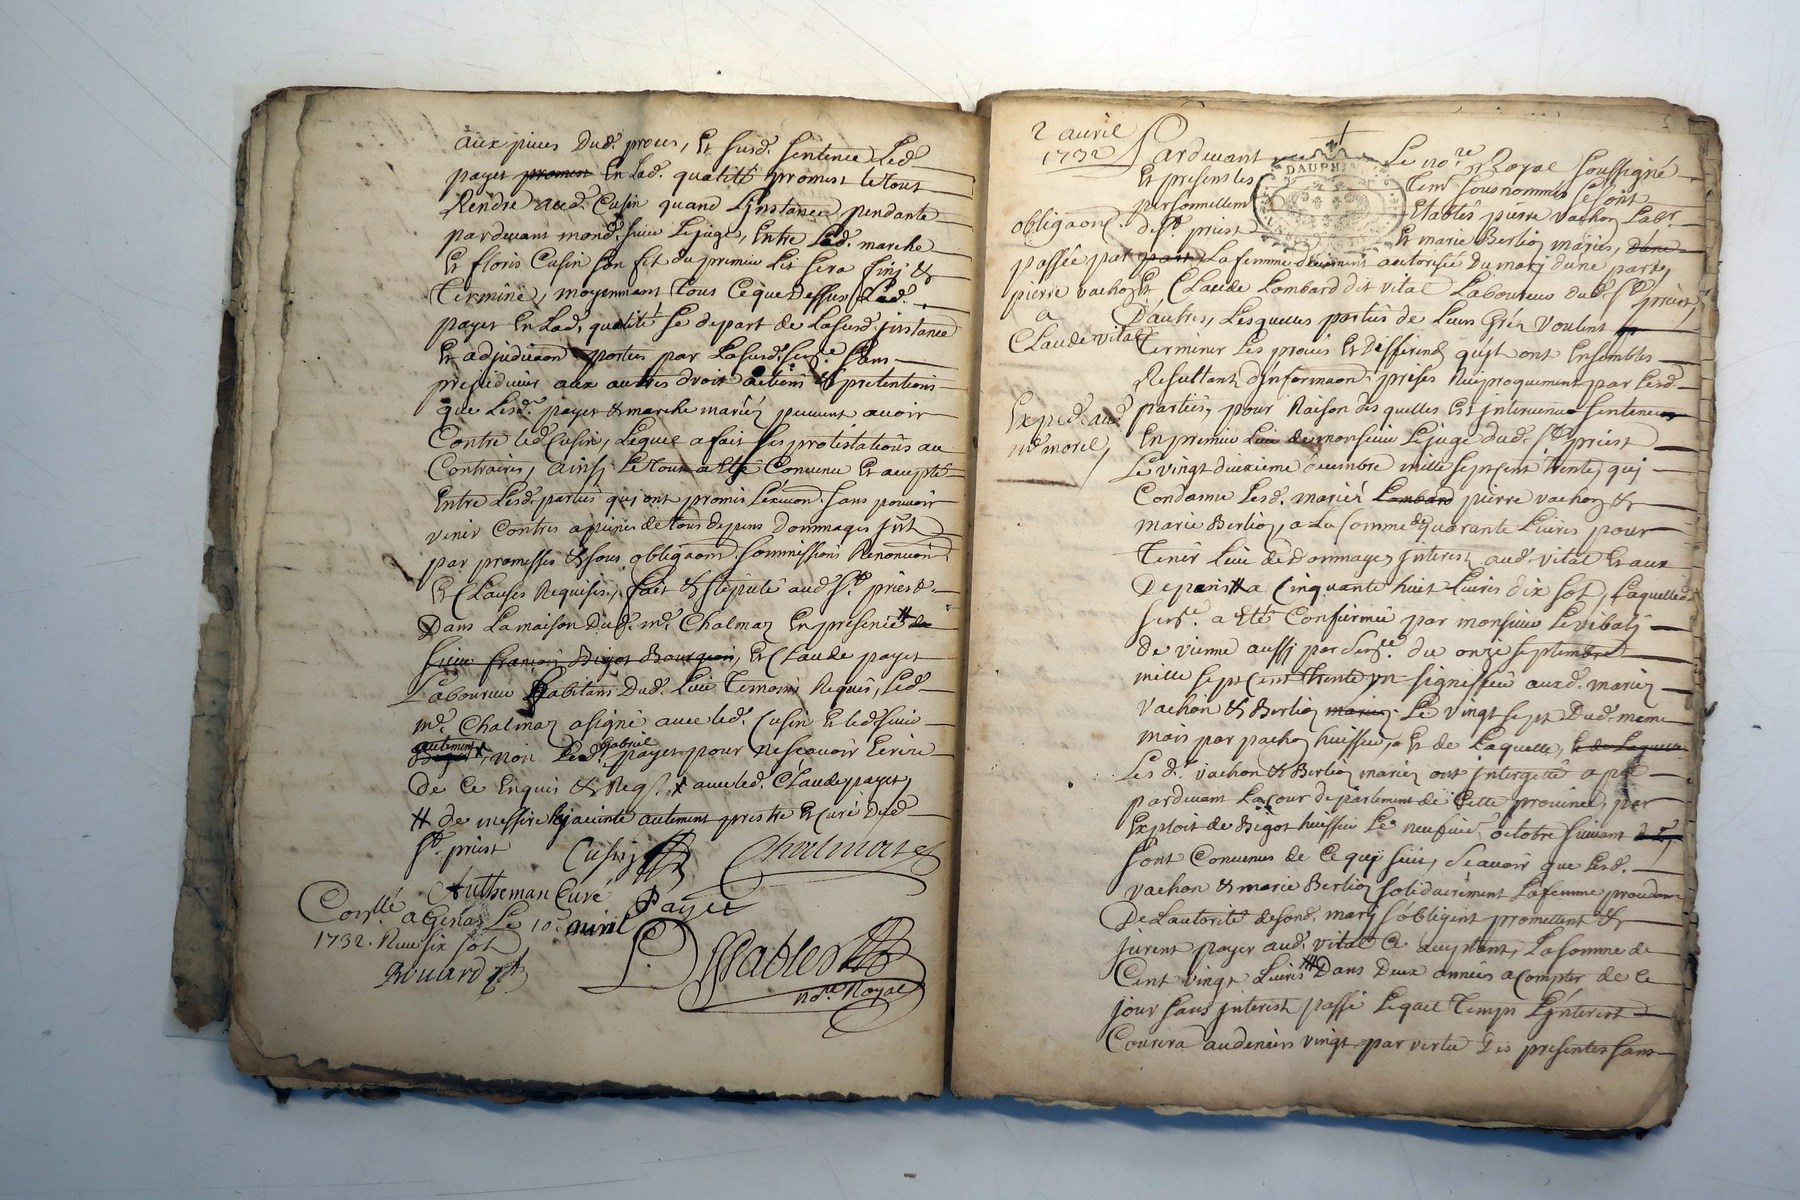 aux pieces Dud. proces, Et susd. sentence Led.
payet promest En Lad. qualité promest le tout
Rendre aud. Cusin quand L'jnstance pendante
pardevant mond. sieur Le juge, Entre Led. marche
Et floris Cusin son fit du premier Lit sera finj &
Terminé, moyennant Tous Ceque Dessus Led.
payet En Lad. qualité se depart de Lasusd. jnstance
Et adjudicaon portés par Lasusd. sence sans
prejudicier aux autres droit actions & pretentions
que Lesd. payet & marche mariéz peuvent avoir
Contre led Cusin, Lequel a fait ses protéstations au
Contraires, Ainsj Le tout a Eté Convenu Et accepté
Entre Lesd. parties quj ont promis sans pouvoir
venir Contres a peines de tous depens Dommages jnt
par promesses & sous obligaon. sommissions Renonciaon
Et Clauses Requises, fait & stipulé aud St. priest
Dans La maison Dud. me. Chalmaz En presence # de
sieur francois Bigot Bourgeois, Et Claude payet
Laboureur habitans Dud. Lieu Temoins Requis, Led.
me. Chalmaz a signé avec led. Cusin Et led. sieur
autement
Bigot, non Led. Gabriel payet pour ne scavoir Ecrire
De Ce Enquis & Reqs. x avec led. Claude payet
# de messire hjacinte autement prestre Et curé Dud
St. priest
Cusin Chalmaz
Autheman Curé Payet
Conllé a Genas Le 10e. avril
1732. Reçu six sol
Rouard
not.re Royal
2 avril
1732
Pardevant Le no.re Royal soussigné
Et presents les Tem. sousnommes se sont
personnellem. Etablés pierre vachon Labr.
DAUPHINE
obligaon
de St. priest Et marie Berlioz mariés, dune
passée par La femme deuement autorisée du marj dune part,
pierre vachon Et Claude Lombard dit vital Laboureur dud. St. priest,
a
Claude vital
D'autres, Lesquelles parties de Leurs Gréz voulent
Terminer Les procés Et differends qu'jls ont Ensembles
Resultant d'jnformaon prises Reciproquement par Lesd.
Exped. aud.
me. morel,
parties, pour Raison des quelles Et jntervenue sentence
En premier Lieu de monsieur Le juge dud. St. priest
Le vingt deuxieme decembre mille sept cent trente, quj
Condamne Lesd. mariéz Lombard pierre vachon &
marie Berlioz, a La somme de quarante Livres pour
Tenir Lieu de Dommages jnterest aud. vital Et aux
Depens # a Cinquante huit Livres dix sol, Laquelled.
sence. a Eté Confirmée par monsieur Le vibalj
de vienne aussi par sence. du onze septembre
mille sept cent trente un signiffiée auxd. mariéz
vachon & Berlioz mariéz. Le vingt sept Dud. meme
mois par pachoz huissier, & de Laquelle, & de Laquelle
Lesd. vachon & Berlioz mariéz ont jntergetté apel
pardevant La Cour de parlement de Cette province, par
Exploit de Bigot huissier Le neufvie. octobre suivant
sont Convenus de Ce quj suit, scavoir que Lesd.
vachon & marie Berlioz solidairement La femme procedant
De L'autorité de sond. marj s'obligent promettent &
jurent payer aud. vital Ce acceptant, La somme de
Cent vingt Livres # Dans Deux années a Compter de Ce
jour sans jnterest passé Lequel Temps L'jnterest
Courira au deniers vingt par vertu Des presentes sans